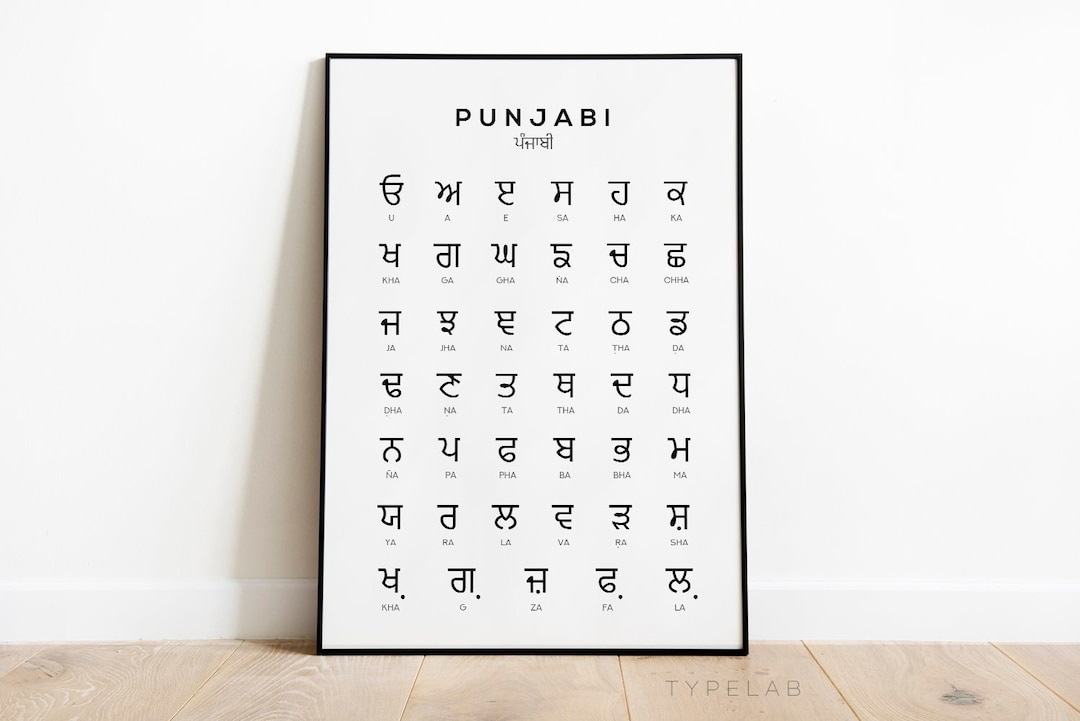 PUNJABI
ਪੰਜਾਬੀ
ੳ ਅ ੲ ਸ ਹ ਕ
U A E SA HA KA
ਖ ਗ ਘ ਙ ਚ ਛ
KHA GA GHA ÑA CHA CHHA
ਜ ਝ ਞ ਟ ਠ ਡ
JA JHA NA TA ṬHA ḌA
ਢ ਣ ਤ ਥ ਦ ਧ
ḌHA ṆA TA THA DA DHA
ਨ ਪ ਫ ਬ ਭ ਮ
ÑA PA PHA BA BHA MA
ਯ ਰ ਲ ਵ ੜ ਸ਼
YA RA LA VA ṚA SHA
ਖ਼ ਗ਼ ਜ਼ ਫ਼ ਲ਼
KHA G ZA FA LA
TYPELAB